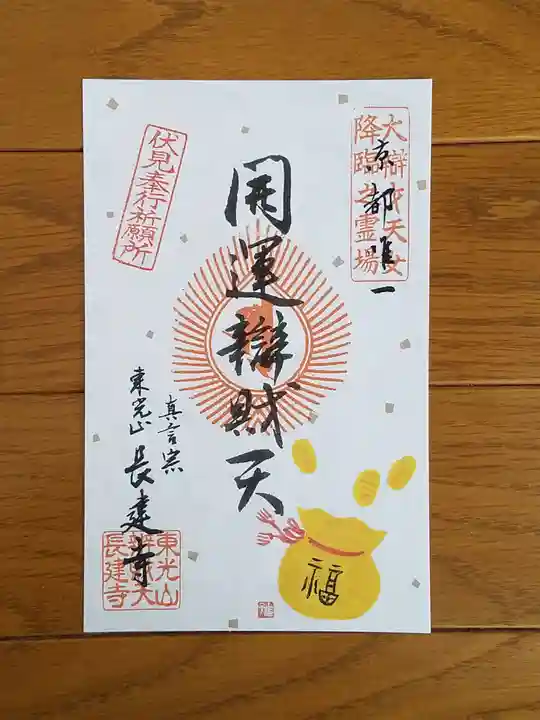 大辯才天女
降臨之霊場
京都唯一
開運辯財天
伏見奉行祈願所
真言宗
東光山
長建寺
福
東光山
辯天
長建寺